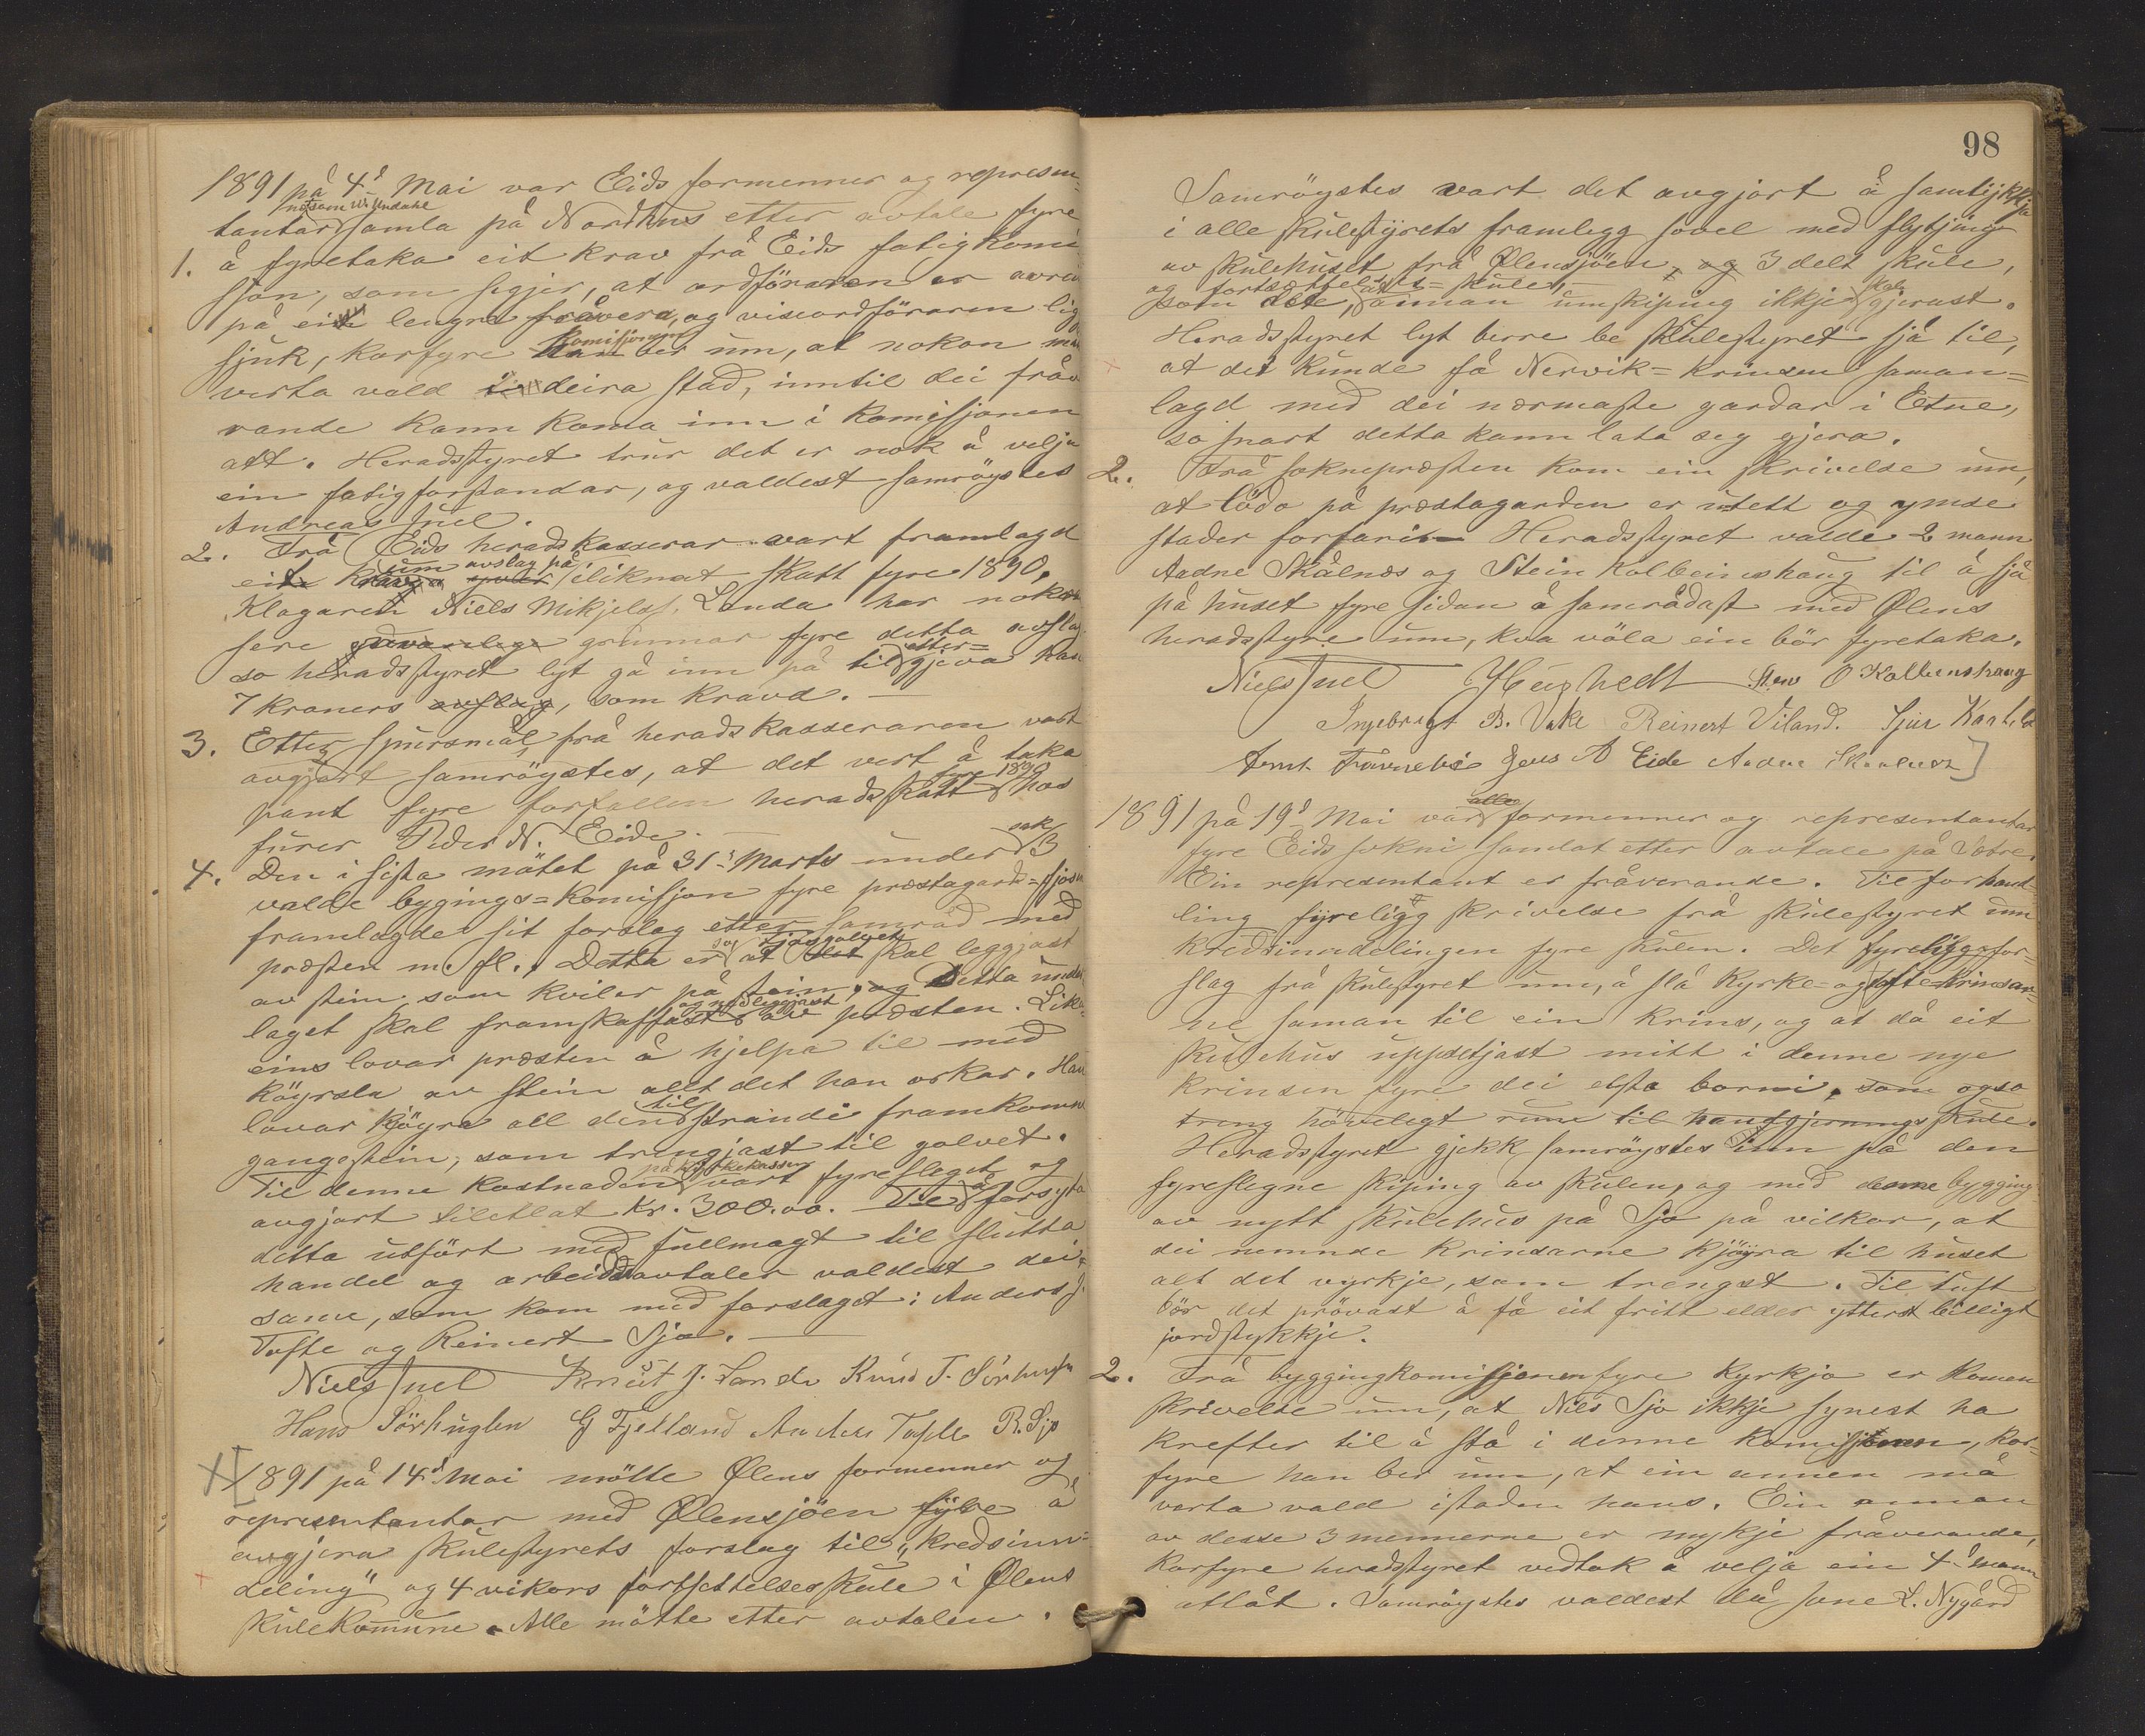 1891 på 4d Mai var Eids formenner og represen-
tantar samla på Nordhus etter avtale fyre
1. å fyretaka eit krav frå Eids fatigkomi-
sjon, som segjer, at ordföraren er avreist
på ein lengre fråvera, og viseordföraren ligg
sjuk, korfyre komisjonen ber um, at nokon må
verta vald i deira stad, inntil dei fråve-
rande kann koma inn i komisjonen
att. Heradsstyret trur det er nok å velja
ein fatigforstandar, og valdest samröystes
Andreas Juel.
2. Frå Eids heradskasserar vart framlagd
eit krav um avslag på iliknat skatt fyre 1890.
Klagaren Niels Mikjelss. Landa har nokon
sere grunnar fyre detta avslag
so heradsstyret lyt gå inn på til ettergjeva han
7 kroners avslag, som kravd.
3. Etter spursmål frå heradskasseraren vart
avgjort samröystes, at det vert å taka
pant fyre forfallen heradsskatt fyre 1890 hos
furer Peder N. Eide.
4. Den i sista mötet på 31s Marts under sak 3
valde bygings-komisjon fyre præstagards-fjosen
framlagde sit forslag etter samråd med
præsten m. fl., Detta er at fjosgolvet skal leggjast
av stein som kviler på stein, og Detta under-
laget skal framskaffast og nedleggjast av præsten. Like-
eins lovar præsten å hjelpa til med
köyrsla av stein allt det han orkar. Han
lovar köyra all den til strandi framkomne
gangestein, som trengjast til golvet.
Til denne kostnaden vart på kyrkjekassen fyreslaget og
avgjort tiletlat Kr. 300.00. Til å forsyta
detta utfört med fullmagt til slutta
handel og arbeidsavtaler valdest dei
same, som kom med forslaget: Anders J.
Tofte og Reinert Sjo.
Niels Juel Knut J. Landa Knud T. Sörhus
Hans Sörhuglen G Fjelland Anders Tofte R. Sjo
1891 på 14d Mai mötte Ølens formenner og
representantar med Ølensjöen fyre å
avgjera skulestyrets forslag til „kredsinn-
deling" og 4 vikors fortsettelsesskule i Ølens
skulekommune. Alle mötte etter avtalen.
98
Samröystes vart det avgjort å samtykkja
i alle skulestyrets framlegg sovel med flytjing
av skulehuset frå Ølensjöen, og 3 delt skule,
og fortsættelses-skule,
som det, annan umskiping ikkje skal gjerast.
Heradsstyret lyt berre be skulestyret sjå til,
at dei kunde få Nervik-krinsen saman-
lagd med dei nærmaste gardar i Etne,
so snart detta kann lata seg gjera.
2. Frå soknepræsten kom ein skrivelse um,
at löda på præstagarden er utett og ymse
stader forfari. Heradsstyret valde 2 mann
Aadne Skålnes og Stein Kolbeinshaug til å sjå
på huset fyre sidan å samrådast med Ølens
heradsstyre um, kva völa ein bör fyretaka.
Niels Juel Sten O Kolbenshaug
Ingebrigt B. Vake Reinert Viland. Sjur
Jens A Eide Aadne Skaalnes
1891 på 19d Mai var alle formenner og representantar
fyre Eids sokni samlat etter avtale på Sætre.
Ein representant er fråverande. Til forhand-
ling fyreligg skrivelse frå skulestyret um
kredsinndelingen fyre skulen. Det fyreligg for-
slag frå skulestyret um, å slå kyrke- og Tofte-krinsar-
ne saman til ein krins, og at då eit
skulehus uppsetjast mitt i denne nye
krinsen fyre dei elsta borni, som ogso
treng höveleget rum til handgjernings skule.
Heradsstyret gjekk samröystes inn på den
fyreslegne skiping av skulen, og med denne bygging
av nytt skulehus på Sjo på vilkor, at
dei nemnde krinsarne kjöyra til huset
alt det vyrkje, som trengst. Til tuft
bör det prövast å få eit fritt elder ytterst billigt
jordstykkje.
2. Frå byggingkomisjonen fyre kyrkja er komen
skrivelse um, at Nils Sjo ikkje synest ha
krefter til å stå i denne komisjonen, kor-
fyre han ber um, at ein annen må
verta vald istaden hans. Ein annan
av desse 3 mennerne er mykje fråverande,
korfyre heradsstyret vedtok å velja ein 4d mann
attåt. Samröystes valdest då Jone L. Nygård